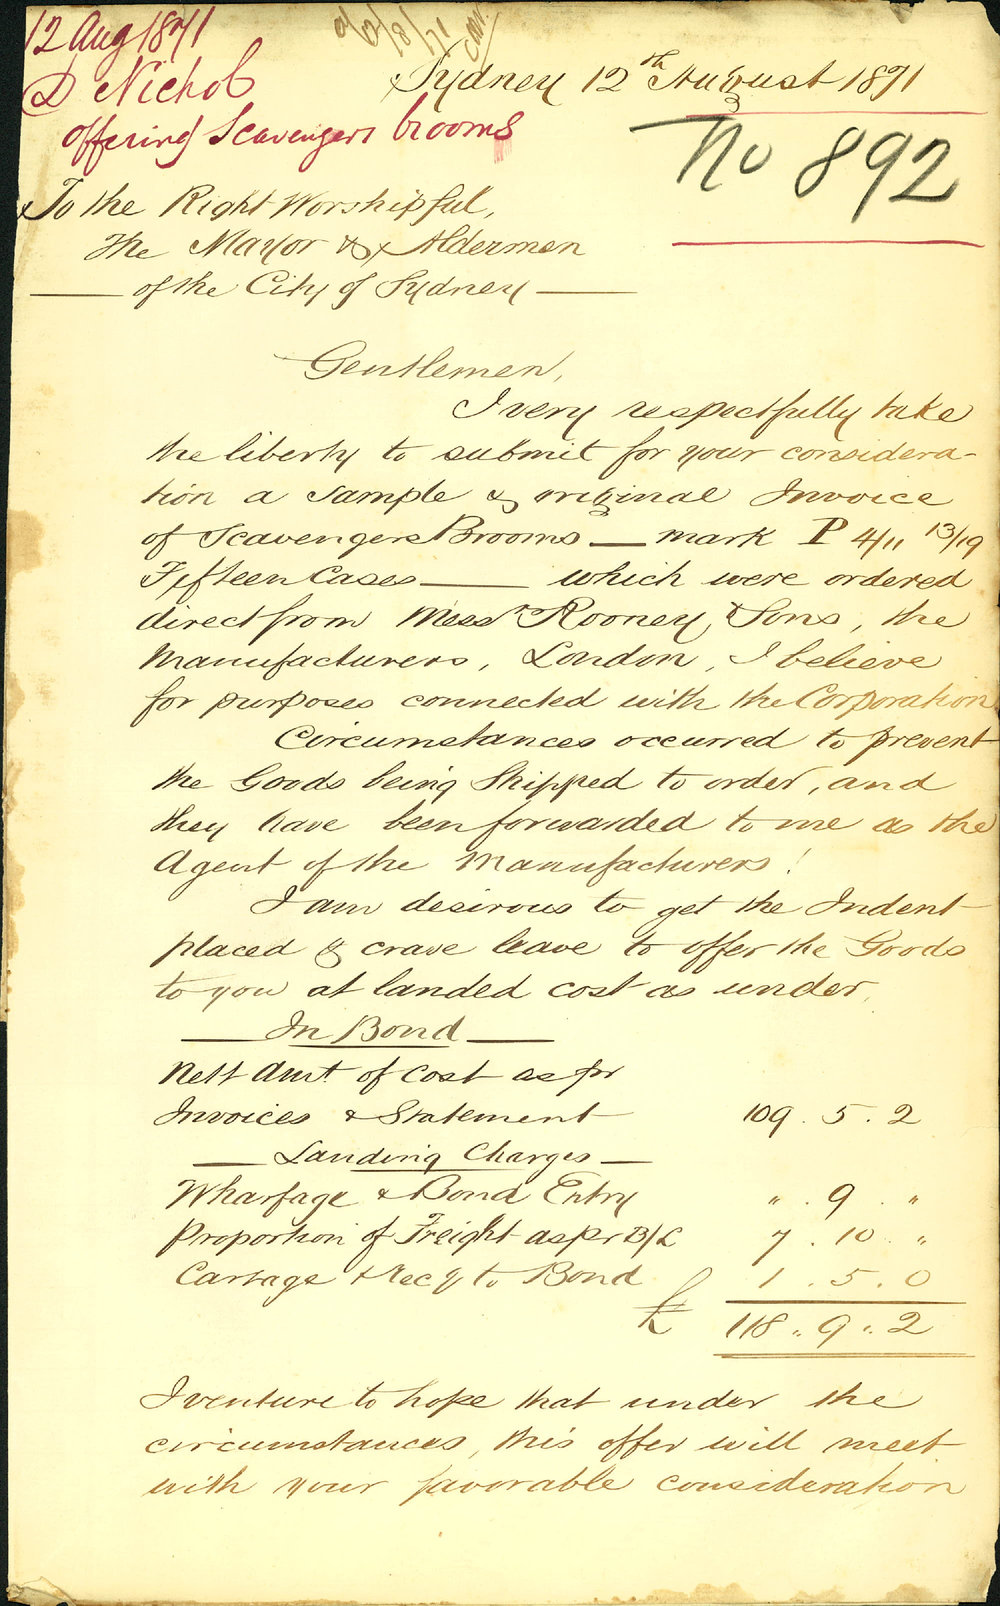 12 Aug 1871
D Nichol
offering Scavengers brooms
Sydney 12th August 1871
No 892
To the Right Worshipful,
The Mayor & Aldermen
of the City of Sydney
Gentlemen,
I very respectfully take
the liberty to submit for your considera-
tion a Sample & original Invoice
of Scavengers Brooms — mark P 4/11 13/19
Fifteen Cases — which were ordered
direct from Messrs Rooney & Sons, the
Manufacturers, London, I believe
for purposes connected with the Corporation
Circumstances occurred to prevent
the Goods being Shipped to order, and
they have been forwarded to me as the
Agent of the Manufacturers!
I am desirous to get the Indent
placed & crave leave to offer the Goods
to you at landed cost as under,
In Bond
Nett Amt of Cost as pr
Invoices & Statement 109 . 5 . 2
Landing Charges
Wharfage & Bond Entry " . 9 . "
Proportion of Freight as pr B/L 7 . 10 . "
Cartage & Rec g to Bond 1 . 5 . 0
£ 118 " 9 " 2
I venture to hope that under the
circumstances, this offer will meet
with your favorable consideration